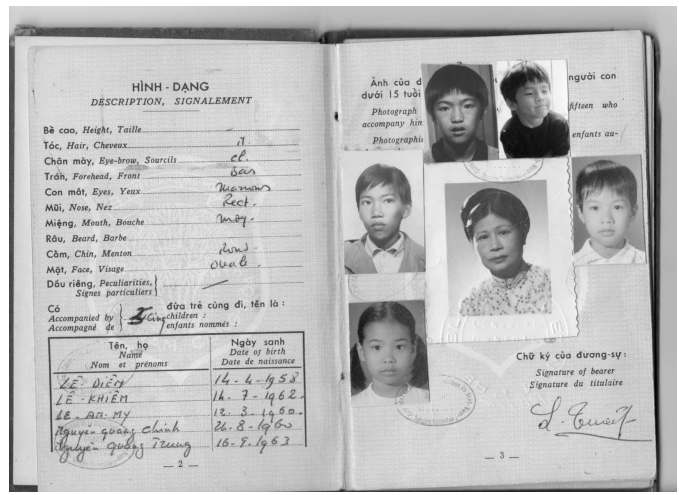 HÌNH - DẠNG
DESCRIPTION, SIGNALEMENT
Bề cao, Height, Taille
Tóc, Hair, Cheveux
Chân mày, Eye-brow, Sourcils ch.
Trán, Forehead, Front bas
Con mắt, Eyes, Yeux marrons
Mũi, Nose, Nez Rect.
Miệng, Mouth, Bouche moy.
Râu, Beard, Barbe
Cằm, Chin, Menton Rond
Mặt, Face, Visage ovale
Dấu riêng, Peculiarities,
Signes particuliers
Có đứa trẻ cùng đi, tên là :
Accompanied by children :
Accompagné de enfants nommés :
Tên, họ Ngày sanh
Name Date of birth
Nom et prénoms Date de naissance
LÊ - DIỄM 14 - 4 - 1958
LÊ - KHIÊM 14 - 7 - 1962
LÊ - AN - MY 12 - 3 - 1960
Nguyễn quang Chinh 26 - 8 - 1960
Nguyễn quang Trung 16 - 9 - 1963
— 2 —
Ảnh của người con
dưới 15 tuổi
Photograph fifteen who
accompany
enfants au-
Chữ ký của đương-sự :
Signature of bearer
Signature du titulaire
— 3 —